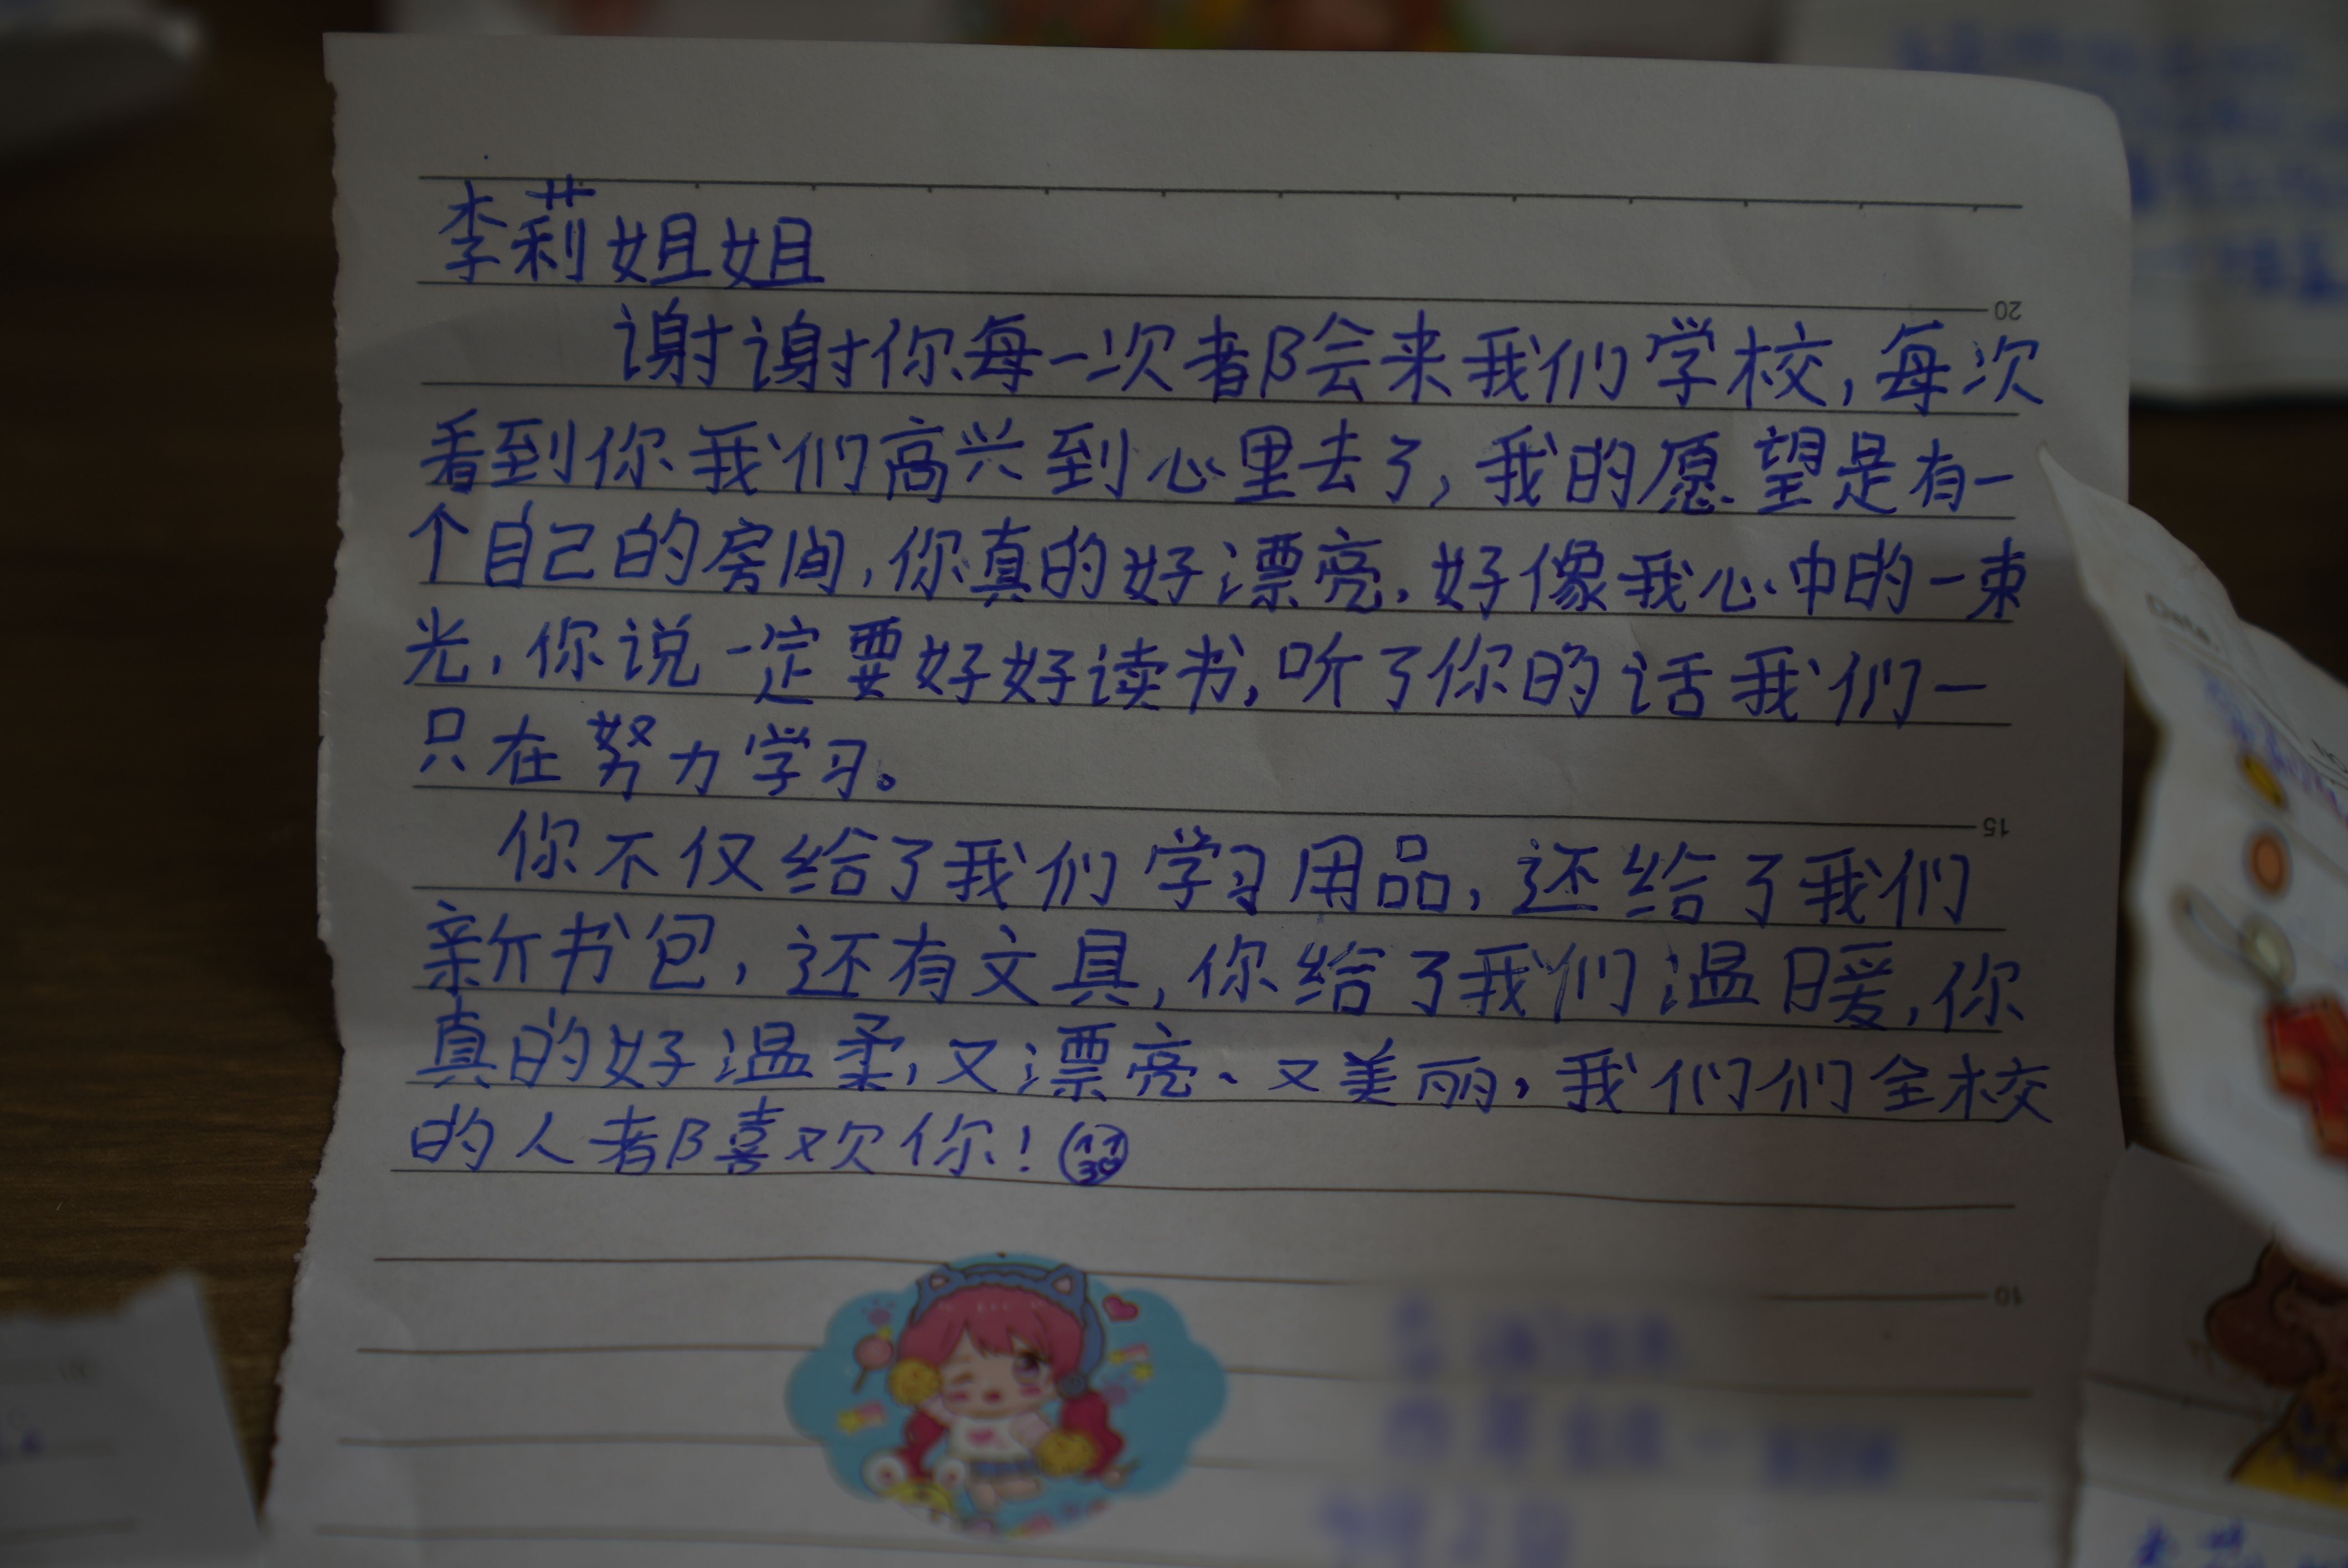 李莉姐姐
谢谢你每一次都会来我们学校，每次
看到你我们高兴到心里去了，我的愿望是有一
个自己的房间，你真的好漂亮，好像我心中的一束
光，你说一定要好好读书，听了你的话我们一
只在努力学习。
你不仅给了我们学习用品，还给了我们
新书包，还有文具，你给了我们温暖，你
真的好温柔，又漂亮、又美丽，我们们全校
的人都喜欢你！
20
15
10